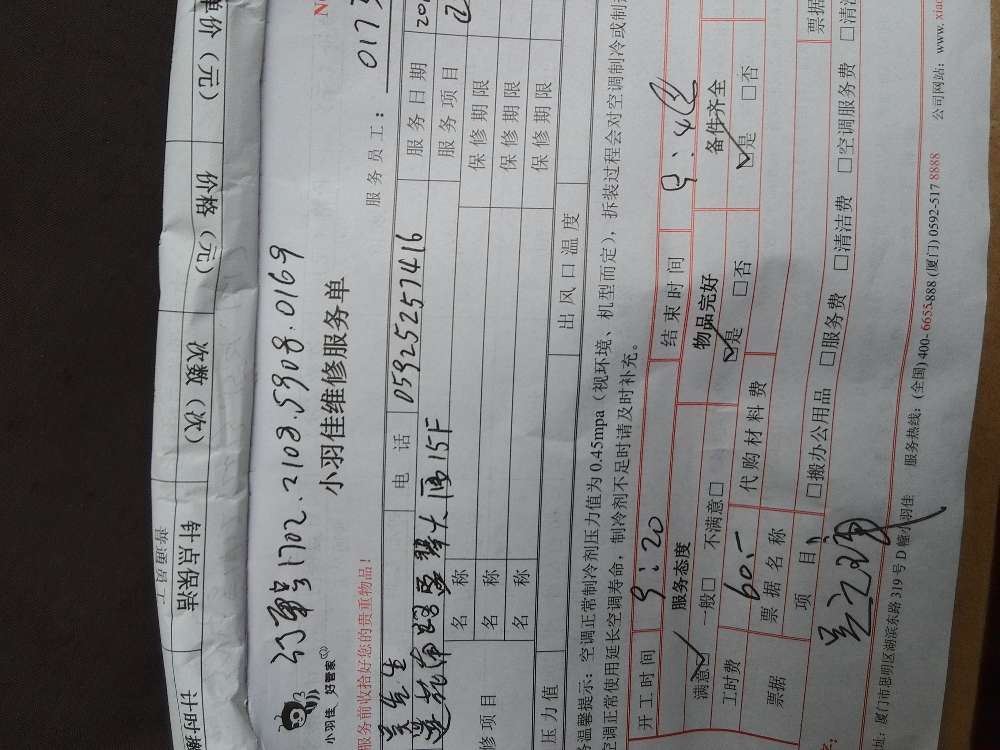 单价（元）
价格（元）
次数（次）
针点保洁
普通员工
计时
订单号1702.2108.5908.0169
小羽佳 好管家
小羽佳维修服务单
服务员工：017
服务前收拾好您的贵重物品！
电话 05925257416 服务日期 20
15F 服务项目
修项目 名称 保修期限
名称 保修期限
名称 保修期限
压力值 出风口温度
温馨提示：空调正常制冷剂压力值为0.45mpa（视环境、机型而定），拆装过程会对空调制冷或制
空调正常使用延长空调寿命，制冷剂不足时请及时补充。
开工时间 9：20 结束时间 9：40
服务态度 物品完好 备件齐全
满意☑ 一般□ 不满意□ ☑是 □否 ☑是 □否
工时费 60.- 代购材料费
票据 票据名称 票据
项目： □搬办公用品 □服务费 □清洁费 □空调服务费 □清洁
址：厦门市思明区湖滨东路319号D幢小羽佳 服务热线：(全国) 400-6655-888 (厦门) 0592-517 8888 公司网站：www.xiao